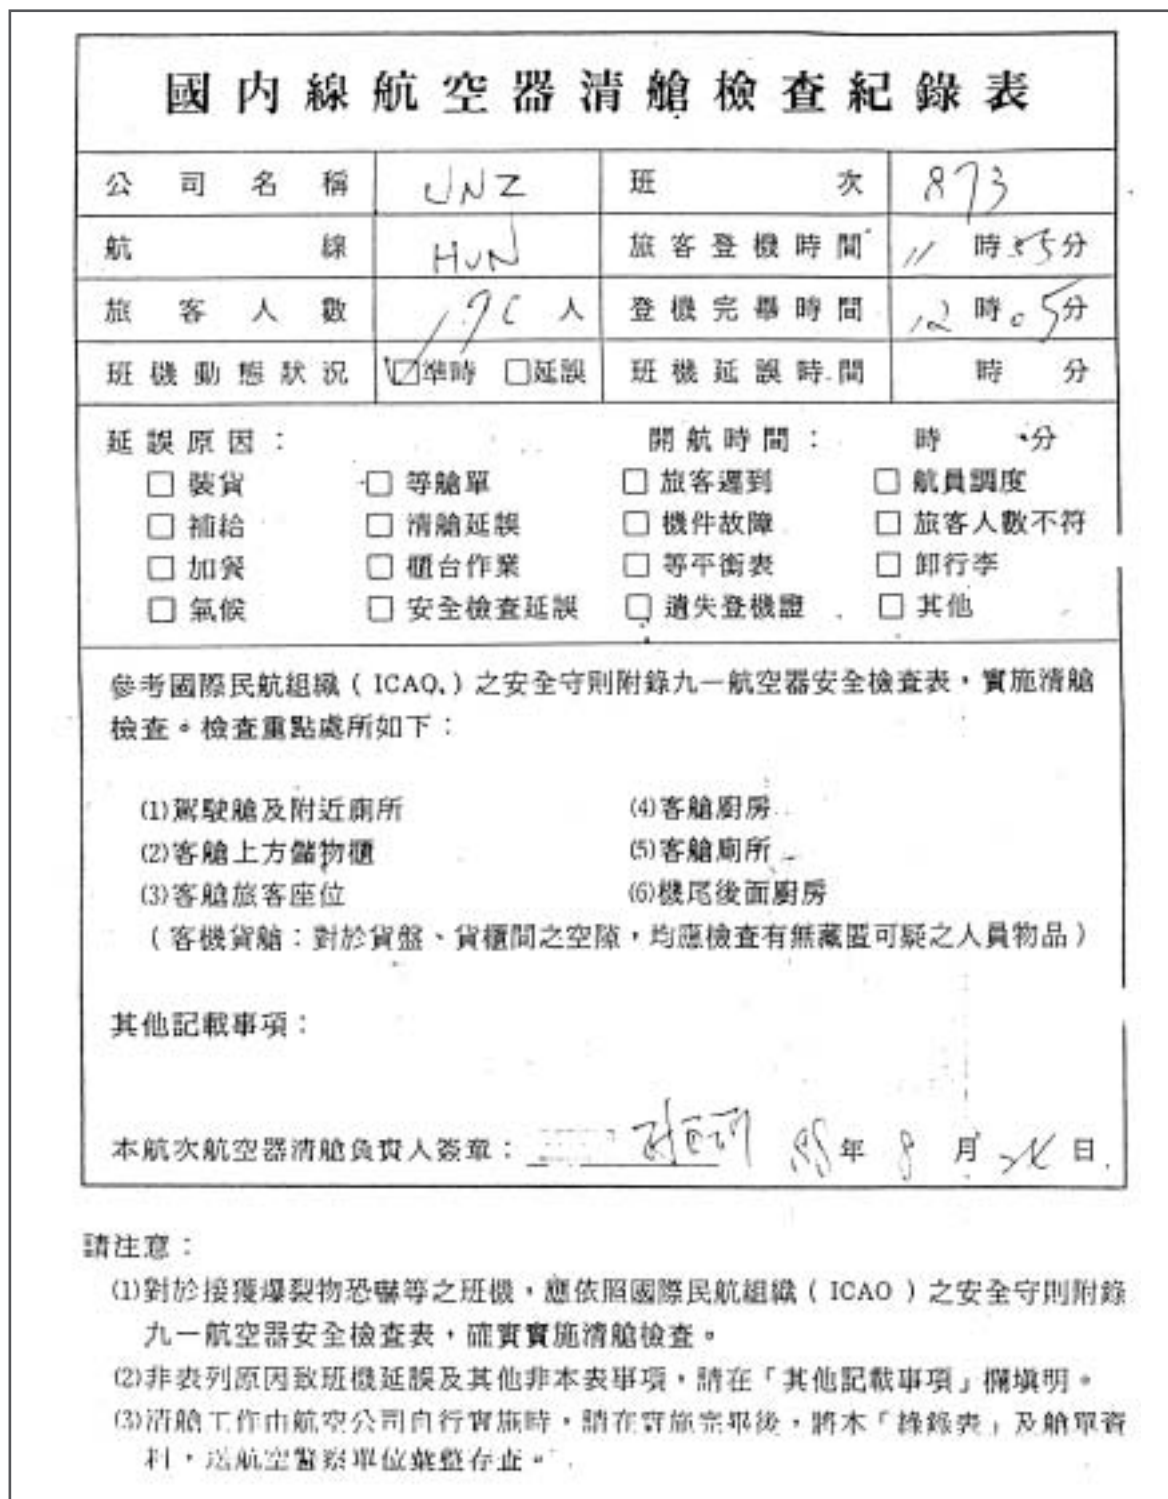 國內線航空器清艙檢查紀錄表
公司名稱 UNZ 班次 873
航線 HUN 旅客登機時間 11時55分
旅客人數 人 登機完畢時間 12時05分
班機動態狀況 ☑準時 □延誤 班機延誤時間 時 分
延誤原因： 開航時間： 時 分
□裝貨 □等艙單 □旅客遲到 □航員調度
□補給 □清艙延誤 □機件故障 □旅客人數不符
□加餐 □櫃台作業 □等平衡表 □卸行李
□氣候 □安全檢查延誤 □遺失登機證 □其他
參考國際民航組織（ICAO）之安全守則附錄九一航空器安全檢查表，實施清艙
檢查。檢查重點處所如下：
(1)駕駛艙及附近廁所 (4)客艙廚房
(2)客艙上方儲物櫃 (5)客艙廁所
(3)客艙旅客座位 (6)機尾後面廚房
（客機貨艙：對於貨盤、貨櫃間之空隙，均應檢查有無藏匿可疑之人員物品）
其他記載事項：
本航次航空器清艙負責人簽章： 88年 8月 日
請注意：
(1)對於接獲爆裂物恐嚇等之班機，應依照國際民航組織（ICAO）之安全守則附錄
九一航空器安全檢查表，確實實施清艙檢查。
(2)非表列原因致班機延誤及其他非本表事項，請在「其他記載事項」欄填明。
(3)清艙工作由航空公司自行實施時，請在實施完畢後，將本「錄表」及艙單資
料，送航空警察單位彙整存查。